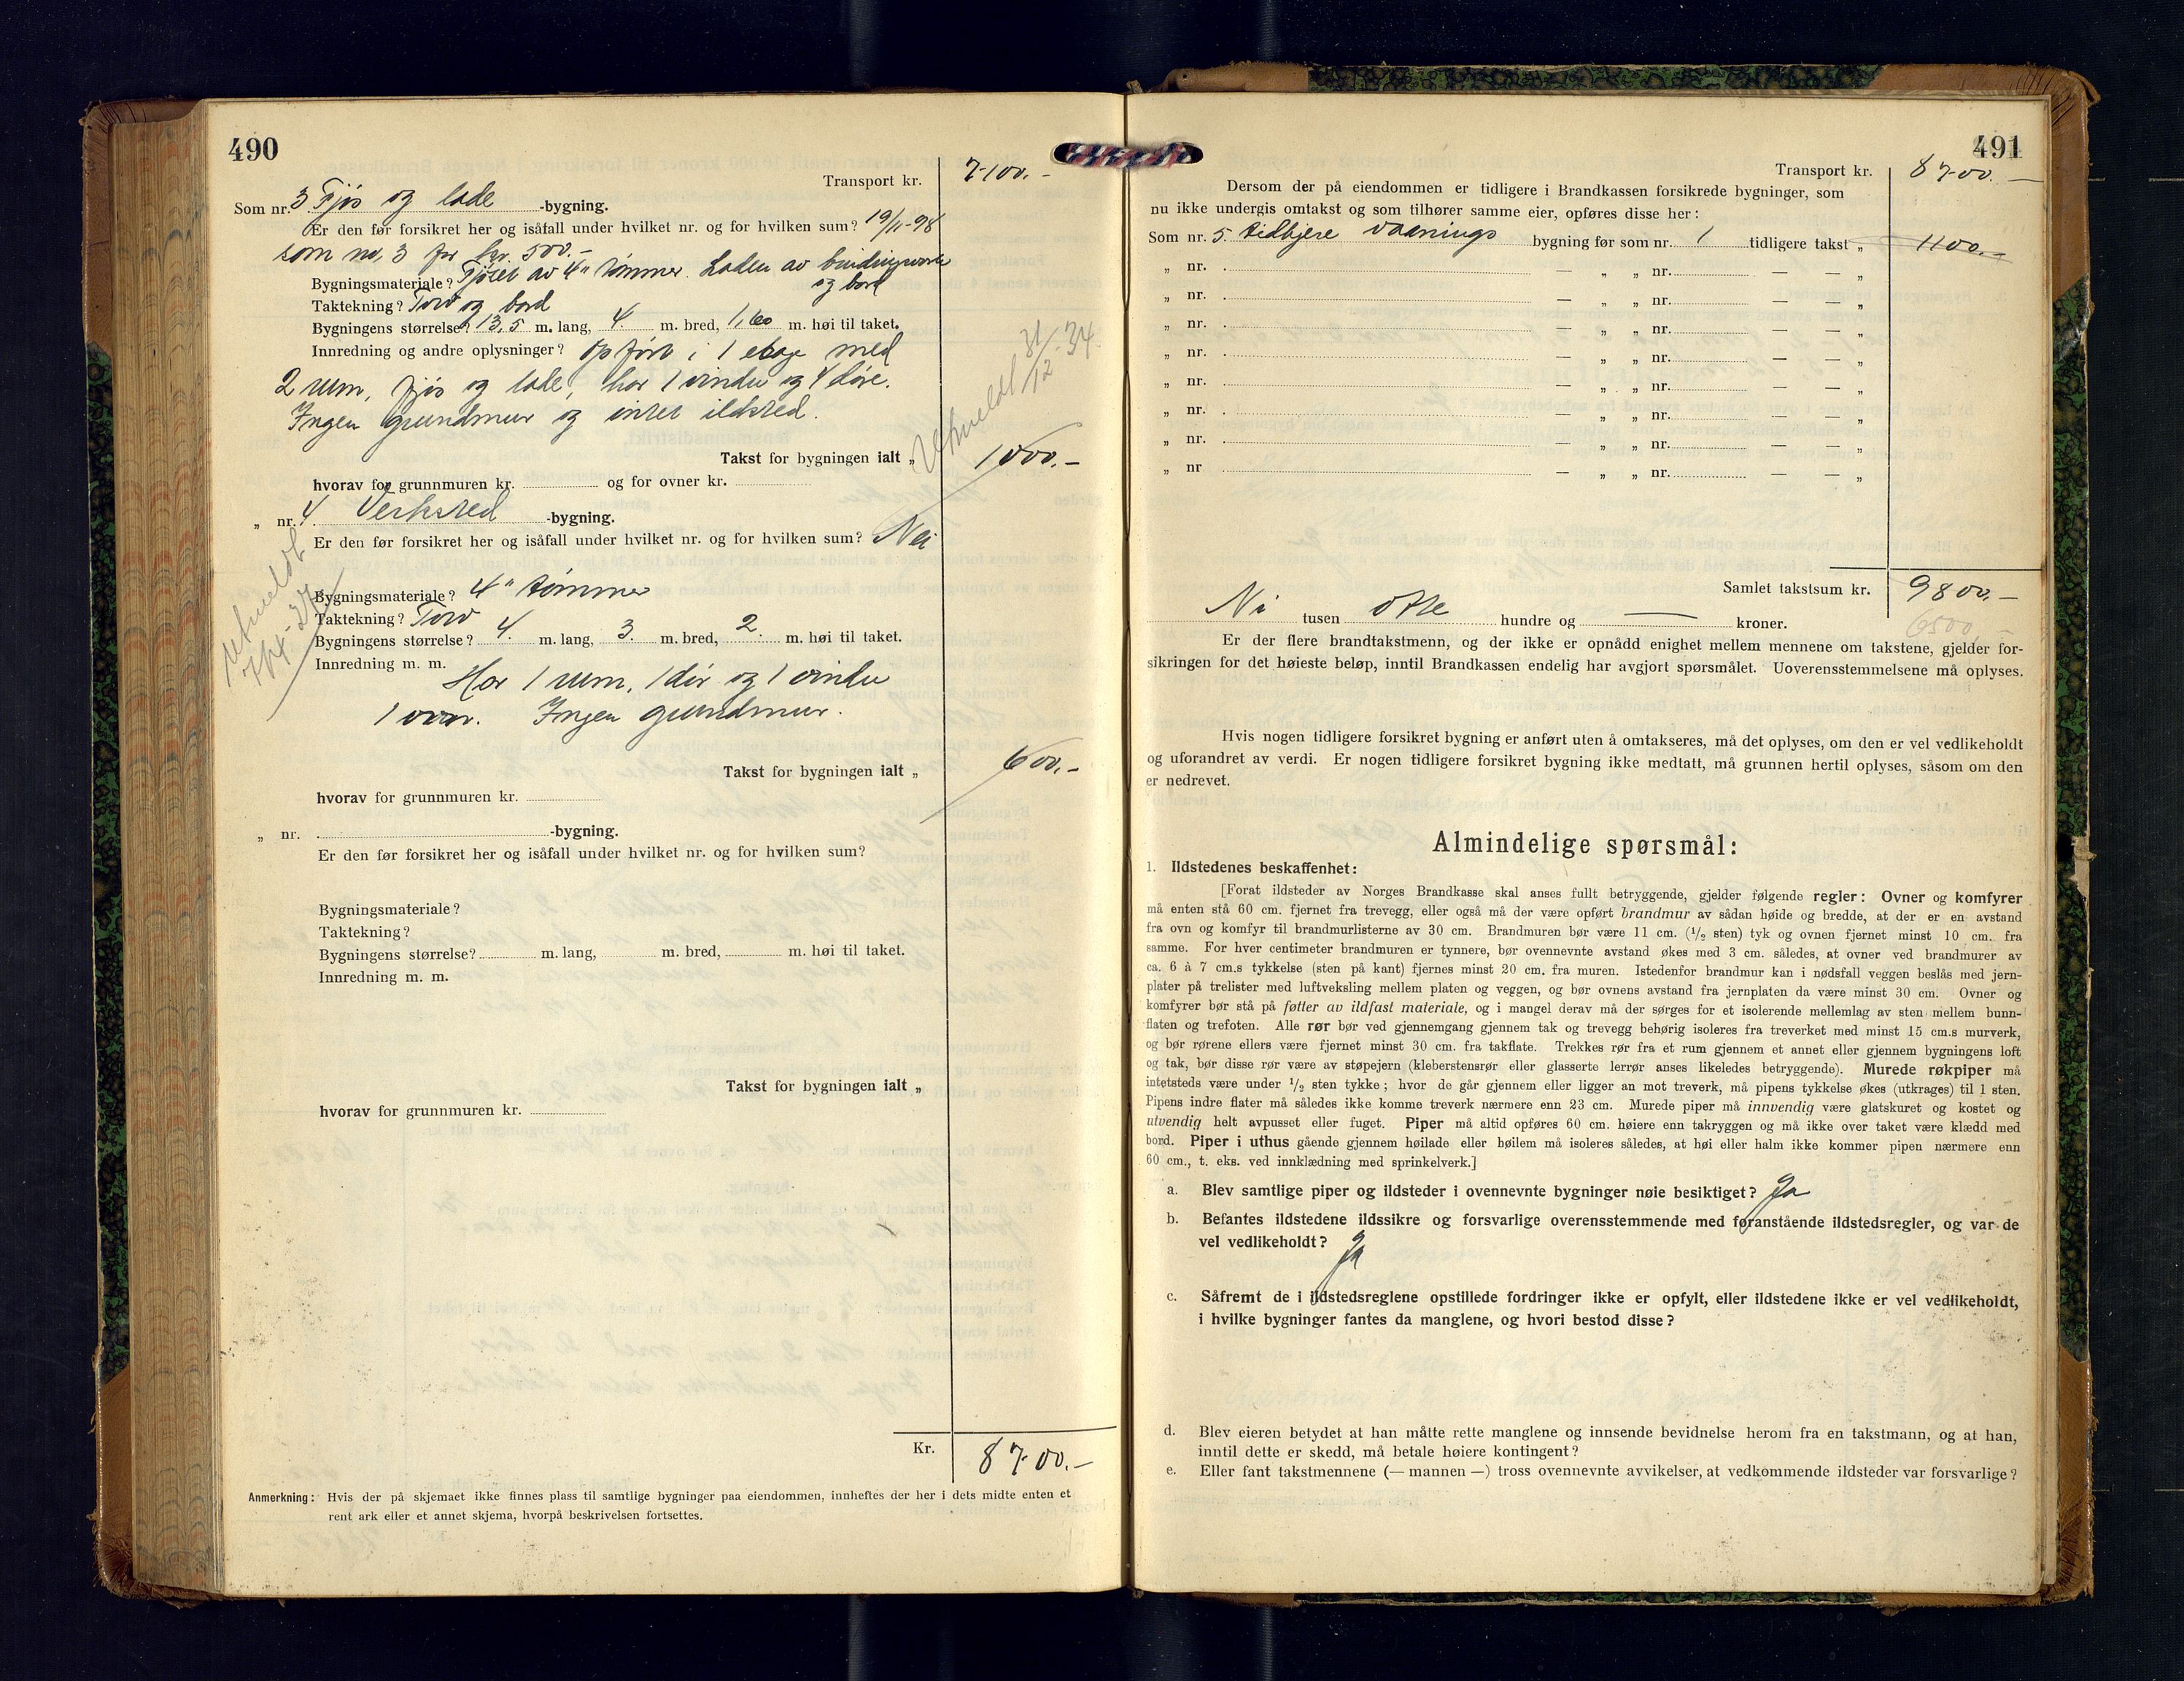 490
Transport kr. 7100.-
Som nr. 3 Fjøs og lade -bygning.
Er den før forsikret her og isåfall under hvilket nr. og for hvilken sum? 19/11-98
som no. 3 for kr. 500.-
Bygningsmateriale? Fjøset av 4" tømmer. Laden av bindingsverk
og bord
Taktekning? Torv og bord
Bygningens størrelse? 13,5 m. lang, 4. m. bred, 1,60 m. høi til taket.
Innredning og andre oplysninger? Opført i 1 etage med
2 rum, fjøs og lade, har 1 vindu og 4 døre.
Ingen grundmur og intet ildsted.
Utmeldt 31/12-34.
Takst for bygningen ialt „ 1000.-
hvorav for grunnmuren kr. og for ovner kr.
„ nr. 4 Verksted -bygning.
Er den før forsikret her og isåfall under hvilket nr. og for hvilken sum? Nei
Utmeldt
Bygningsmateriale? 4" tømmer
Taktekning? Torv
Bygningens størrelse? 4. m. lang, 3. m. bred, 2. m. høi til taket.
Innredning m. m.
Har 1 rum, 1 dør og 1 vindu
1 ovn. Ingen grundmur.
Takst for bygningen ialt „ 600.-
hvorav for grunnmuren kr.
„ nr. -bygning.
Er den før forsikret her og isåfall under hvilket nr. og for hvilken sum?
Bygningsmateriale?
Taktekning?
Bygningens størrelse? m. lang, m. bred, m. høi til taket.
Innredning m. m.
Takst for bygningen ialt „
hvorav for grunnmuren kr.
Kr. 8700.-
Anmerkning: Hvis der på skjemaet ikke finnes plass til samtlige bygninger paa eiendommen, innheftes der her i dets midte enten et
rent ark eller et annet skjema, hvorpå beskrivelsen fortsettes.
491
Transport kr. 8700.-
Dersom der på eiendommen er tidligere i Brandkassen forsikrede bygninger, som
nu ikke undergis omtakst og som tilhører samme eier, opføres disse her:
Som nr. 5 tidligere vaanings bygning før som nr. 1 tidligere takst „ 1100.-
„ nr. — „ „ nr. — — „
„ nr. — „ „ nr. — — „
„ nr. — „ „ nr. — — „
„ nr. — „ „ nr. — — „
„ nr. — „ „ nr. — — „
„ nr. — „ „ nr. — — „
„ nr. — „ „ nr. — — „
„ nr — „ „ nr. — — „
Samlet takstsum kr. 9800.-
Ni tusen otte hundre og — kroner.
6500,-
Er der flere brandtakstmenn, og der ikke er opnådd enighet mellem mennene om takstene, gjelder for-
sikringen for det høieste beløp, inntil Brandkassen endelig har avgjort spørsmålet. Uoverensstemmelsene må oplyses.
Hvis nogen tidligere forsikret bygning er anført uten å omtakseres, må det oplyses, om den er vel vedlikeholdt
og uforandret av verdi. Er nogen tidligere forsikret bygning ikke medtatt, må grunnen hertil oplyses, såsom om den
er nedrevet.
Almindelige spørsmål:
1. Ildstedenes beskaffenhet:
[Forat ildsteder av Norges Brandkasse skal anses fullt betryggende, gjelder følgende regler: Ovner og komfyrer
må enten stå 60 cm. fjernet fra trevegg, eller også må der være opført brandmur av sådan høide og bredde, at der er en avstand
fra ovn og komfyr til brandmurlisterne av 30 cm. Brandmuren bør være 11 cm. (1/2 sten) tyk og ovnen fjernet minst 10 cm. fra
samme. For hver centimeter brandmuren er tynnere, bør ovennevnte avstand økes med 3 cm. således, at ovner ved brandmurer av
ca. 6 à 7 cm.s tykkelse (sten på kant) fjernes minst 20 cm. fra muren. Istedenfor brandmur kan i nødsfall veggen beslås med jern-
plater på trelister med luftveksling mellem platen og veggen, og bør ovnens avstand fra jernplaten da være minst 30 cm. Ovner og
komfyrer bør stå på føtter av ildfast materiale, og i mangel derav må der sørges for et isolerende mellemlag av sten mellem bunn-
flaten og trefoten. Alle rør bør ved gjennemgang gjennem tak og trevegg behørig isoleres fra treverket med minst 15 cm.s murverk,
og bør rørene ellers være fjernet minst 30 cm. fra takflate. Trekkes rør fra et rum gjennem et annet eller gjennem bygningens loft
og tak, bør disse rør være av støpejern (kleberstensrør eller glasserte lerrør anses likeledes betryggende). Murede røkpiper må
intetsteds være under 1/2 sten tykke; hvor de går gjennem eller ligger an mot treverk, må pipens tykkelse økes (utkrages) til 1 sten.
Pipens indre flater må således ikke komme treverk nærmere enn 23 cm. Murede piper må innvendig være glatskuret og kostet og
utvendig helt avpusset eller fuget. Piper må altid opføres 60 cm. høiere enn takryggen og må ikke over taket være klædd med
bord. Piper i uthus gående gjennem høilade eller høilem må isoleres således, at høi eller halm ikke kommer pipen nærmere enn
60 cm., t. eks. ved innklædning med sprinkelverk.]
a. Blev samtlige piper og ildsteder i ovennevnte bygninger nøie besiktiget? Ja
b. Befantes ildstedene ildssikre og forsvarlige overensstemmende med foranstående ildstedsregler, og var de
vel vedlikeholdt? Ja
c. Såfremt de i ildstedsreglene opstillede fordringer ikke er opfylt, eller ildstedene ikke er vel vedlikeholdt,
i hvilke bygninger fantes da manglene, og hvori bestod disse?
d. Blev eieren betydet at han måtte rette manglene og innsende bevidnelse herom fra en takstmann, og at han,
inntil dette er skedd, må betale høiere kontingent?
e. Eller fant takstmennene (— mannen —) tross ovennevnte avvikelser, at vedkommende ildsteder var forsvarlige?